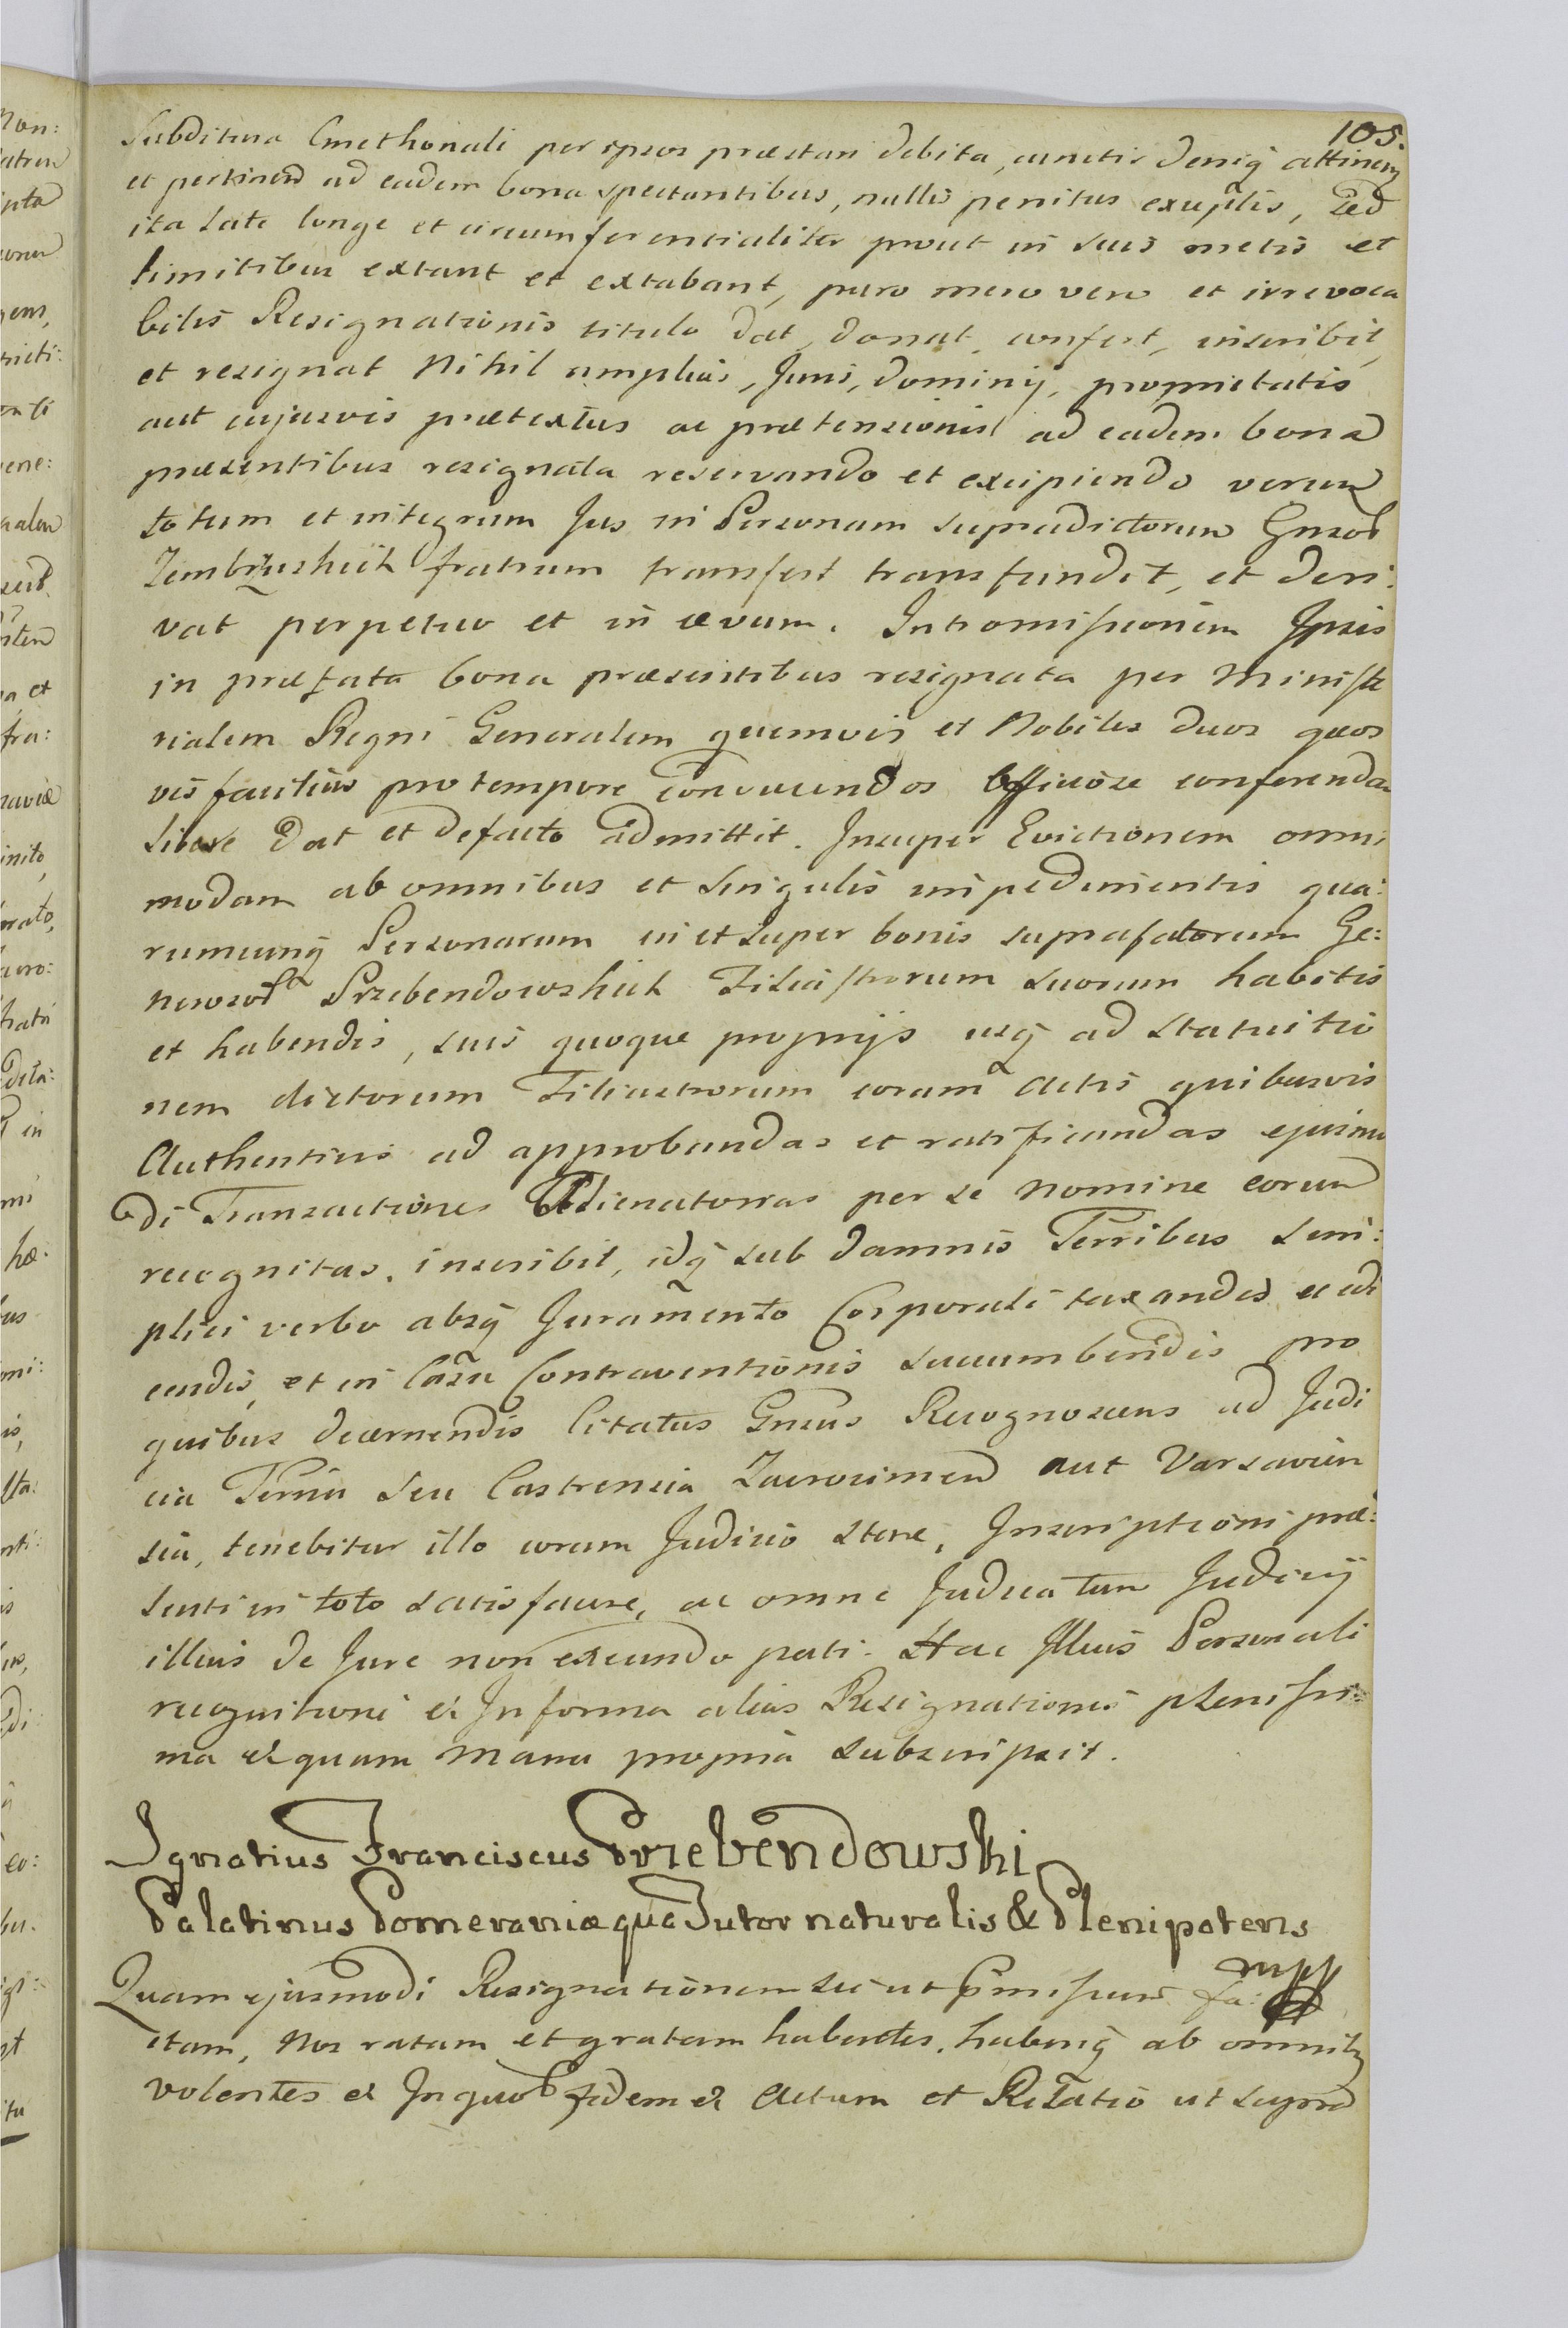 105.
Subditina Cmethonali per ipsos præstari debita, cunctis deniq̃ attinen
et pertinen ad eadem bona spectantibus, nullis penitus exceptis, sed
ita late longe et circumferentialiter prout in suis metis et
limitibus extant et extabant, puro mero vero et irrevoca
bilis Resignationis titulo dat, donat, confert, inscribit,
et resignat Nihil amplius, Juris, dominij, proprietatis
aut cujusvis prætextus ac prætensionis ad eadem bona
præsentibus resignata reservando et excipiendo verum
totum et integrum Jus in Personam supradictorum Gnsor
Zembrzuskich fratrum transfert transfundit, et deri:
vat perpetuo et in ævum. Intromissionem Ipsis
in præfata bona præsentibus resignata per Ministe
rialem Regni Generalem quemvis et Nobiles duos quos
vis facilius pro tempore conducendos Officiose conferendam
libere dat et defacto admittit. Insuper Evictionem omni
modam ab omnibus et singulis impedimentis qua:
rumcunq̃ Personarum in et super bonis suprafatorum Ge:
neroror Przebendowskich Filiastrorum suorum habitis
et habendis, suis quoque proprijs usq̃ ad statuitio
nem dictorum Filiastrorum coram Actis quibusvis
Authenticis ad approbandas et ratificandas ejusmo
di Transactiones Alienatorias per se nomine eorum
recognitas, inscribit, idq̃ sub damnis Terribus sim:
plici verbo absq̃ Juramento Corporali taxandis edi
cendis, et in Casu Contraventionis succumbendis pro
quibus decernendis Citatus Gnsus Recognoscens ad Judi
cia Terria seu Castrensia Zacrocimen aut Varsavien
sia, tenebitur illo coram Judicio stare, Inscriptioni præ:
senti in toto satisfacere, ac omne Judicatum Judicij
illius de Jure non exeundo pati. Hac Illius Personali
recognitione et In forma alias Resignationis plenissi:
ma et quam Manu propria subscripsit.
Ignatius Franciscus Przebendowski
Palatinus Pomeraniæ qua Tutor naturalis & Plenipotens
mpp
Quam ejusmodi Resignationem sic ut præmissum fa:
ctam, Nos ratam et gratam habentes, haberiq̃ ab omnibq
volentes et In quor fidem et Actum et Relatio ut supra